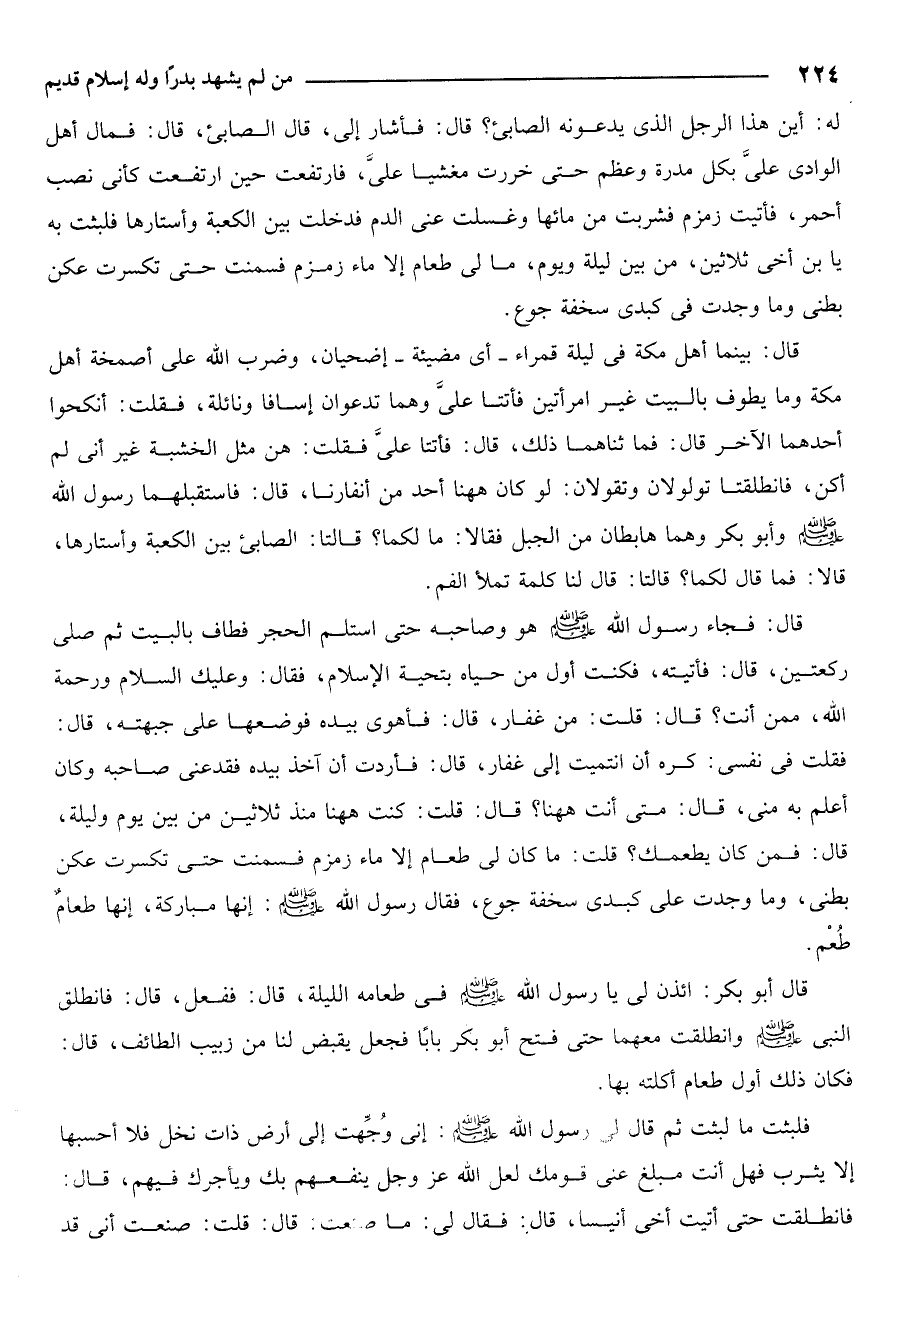 ٢٢٤ من لم يشهد بدرًا وله إسلام قديم
له: أين هذا الرجل الذى يدعونه الصابئ؟ قال: فأشار إلى، قال الصابئ، قال: فمال أهل
الوادى علىَّ بكل مدرة وعظم حتى خررت مغشيا علىَّ، فارتفعت حين ارتفعت كأنى نصب
أحمر، فأتيت زمزم فشربت من مائها وغسلت عنى الدم فدخلت بين الكعبة وأستارها فلبثت به
يا بن أخى ثلاثين، من بين ليلة ويوم، ما لى طعام إلا ماء زمزم فسمنت حتى تكسرت عكن
بطنى وما وجدت فى كبدى سخفة جوع.
قال: بينما أهل مكة فى ليلة قمراء ـ أى مضيئة ـ إضحيان، وضرب الله على أصمخة أهل
مكة وما يطوف بالبيت غير امرأتين فأتتا علىَّ وهما تدعوان إسافا ونائلة، فقلت: أنكحوا
أحدهما الآخر قال: فما ثناهما ذلك، قال: فأتتا علىَّ فقلت: هن مثل الخشبة غير أنى لم
أكن، فانطلقتا تولولان وتقولان: لو كان ههنا أحد من أنفارنا، قال: فاستقبلهما رسول الله
ﷺ وأبو بكر وهما هابطان من الجبل فقالا: ما لكما؟ قالتا: الصابئ بين الكعبة وأستارها،
قالا: فما قال لكما؟ قالتا: قال لنا كلمة تملأ الفم.
قال: فجاء رسول الله ﷺ هو وصاحبه حتى استلم الحجر فطاف بالبيت ثم صلى
ركعتين، قال: فأتيته، فكنت أول من حياه بتحية الإسلام، فقال: وعليك السلام ورحمة
الله، ممن أنت؟ قال: قلت: من غفار، قال: فأهوى بيده فوضعها على جبهته، قال:
فقلت فى نفسى: كره أن انتميت إلى غفار، قال: فأردت أن آخذ بيده فقدعنى صاحبه وكان
أعلم به منى، قال: متى أنت ههنا؟ قال: قلت: كنت ههنا منذ ثلاثين من بين يوم وليلة،
قال: فمن كان يطعمك؟ قلت: ما كان لى طعام إلا ماء زمزم فسمنت حتى تكسرت عكن
بطنى، وما وجدت على كبدى سخفة جوع، فقال رسول الله ﷺ: إنها مباركة، إنها طعامٌ
طُعْم.
قال أبو بكر: ائذن لى يا رسول الله ﷺ فى طعامه الليلة، قال: ففعل، قال: فانطلق
النبى ﷺ وانطلقت معهما حتى فتح أبو بكر بابًا فجعل يقبض لنا من زبيب الطائف، قال:
فكان ذلك أول طعام أكلته بها.
فلبثت ما لبثت ثم قال لى رسول الله ﷺ: إنى وُجِّهت إلى أرض ذات نخل فلا أحسبها
إلا يثرب فهل أنت مبلغ عنى قومك لعل الله عز وجل ينفعهم بك ويأجرك فيهم، قال:
فانطلقت حتى أتيت أخى أنيسا، قال: فقال لى: ما صنعت: قال: قلت: صنعت أنى قد